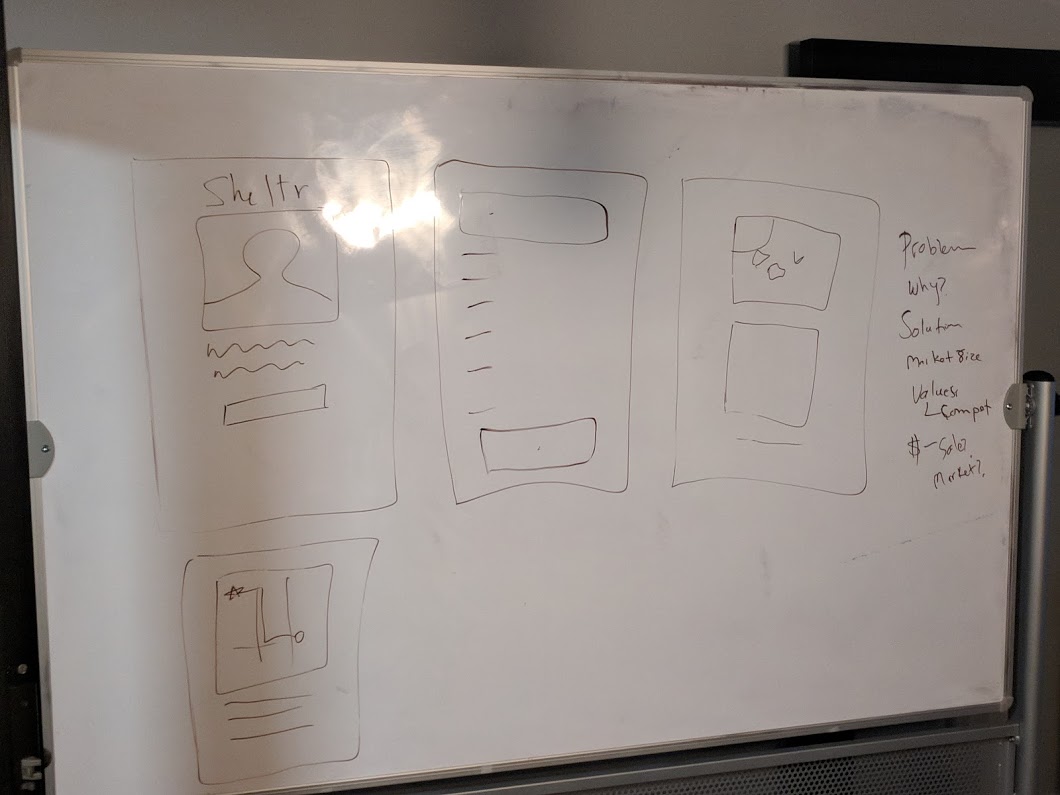 Sheltr
Problem
Why?
Solution
Market Size
Values
Compet
$ - Sales
Market?